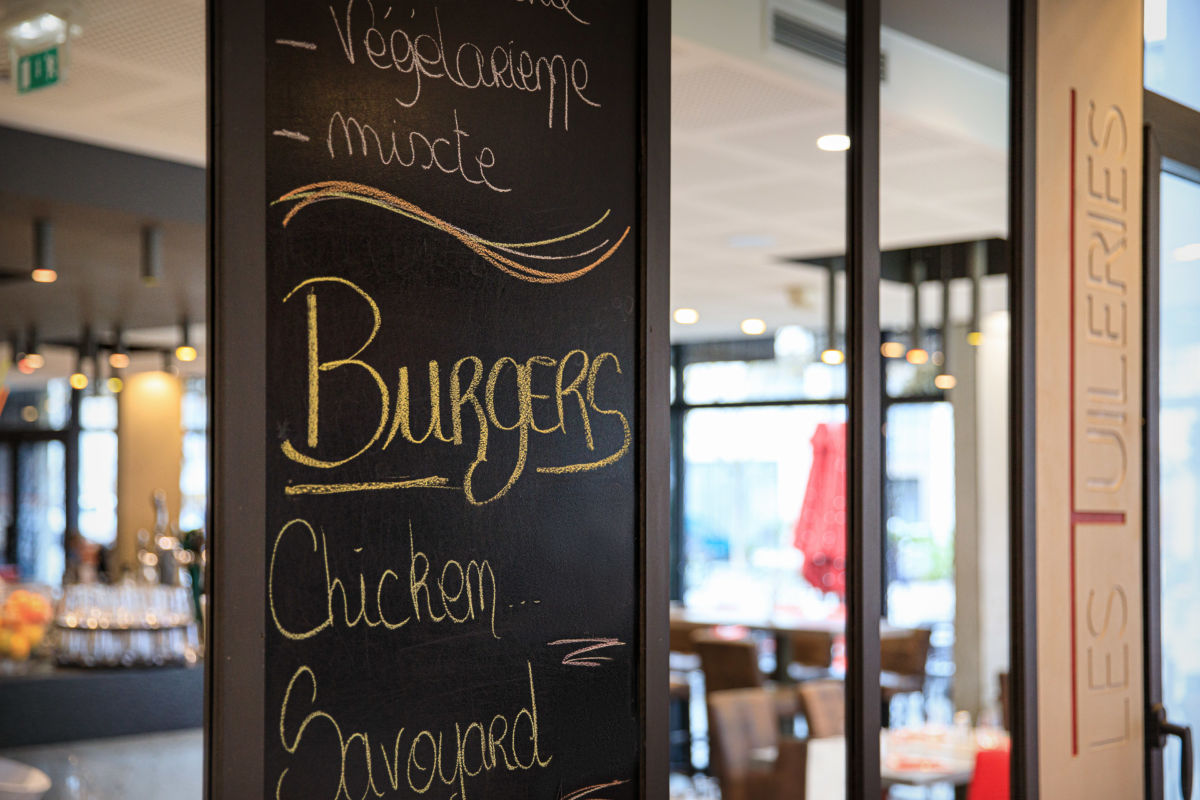 - Végétarienne
- mixte
Burgers
Chicken ...
Savoyard
LES TUILERIES